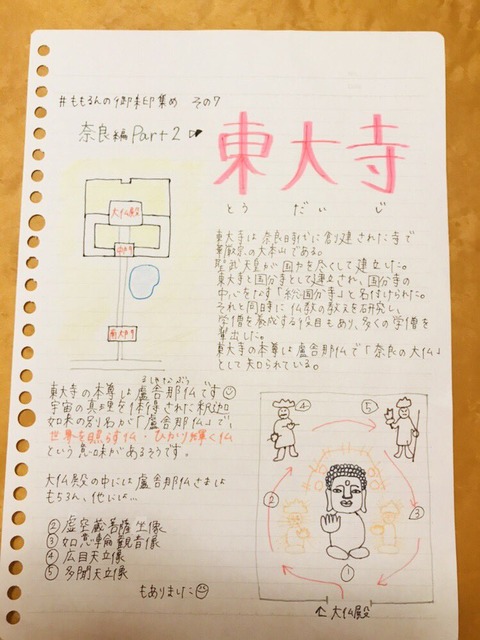 #ももるんの御朱印集め その7
奈良編 Part2
東大寺
とうだいじ
大仏殿
中門
南大門
東大寺は奈良時代に創建された寺で
華厳宗の大本山である。
聖武天皇が国力を尽くして建立した。
東大寺と国分寺として建立され、国分寺の
中心をなす「総国分寺」と名付けられた。
それと同時に仏教の教えを研究し、
学僧を養成する役目もあり、多くの学僧を
輩出した。
東大寺の本尊は盧舎那仏で「奈良の大仏」
として知られている。
るしゃなぶつ
東大寺の本尊は盧舎那仏です
宇宙の真理を体得された釈迦
如来の別名が「盧舎那仏」で
世界を照らす仏・ひかり輝く仏
という意味があるそうです。
大仏殿の中には盧舎那仏さまは
もちろん、他には…
② 虚空蔵菩薩坐像
③ 如意輪観音像
④ 広目天立像
⑤ 多聞天立像
もありました
④
⑤
②
③
①
大仏殿